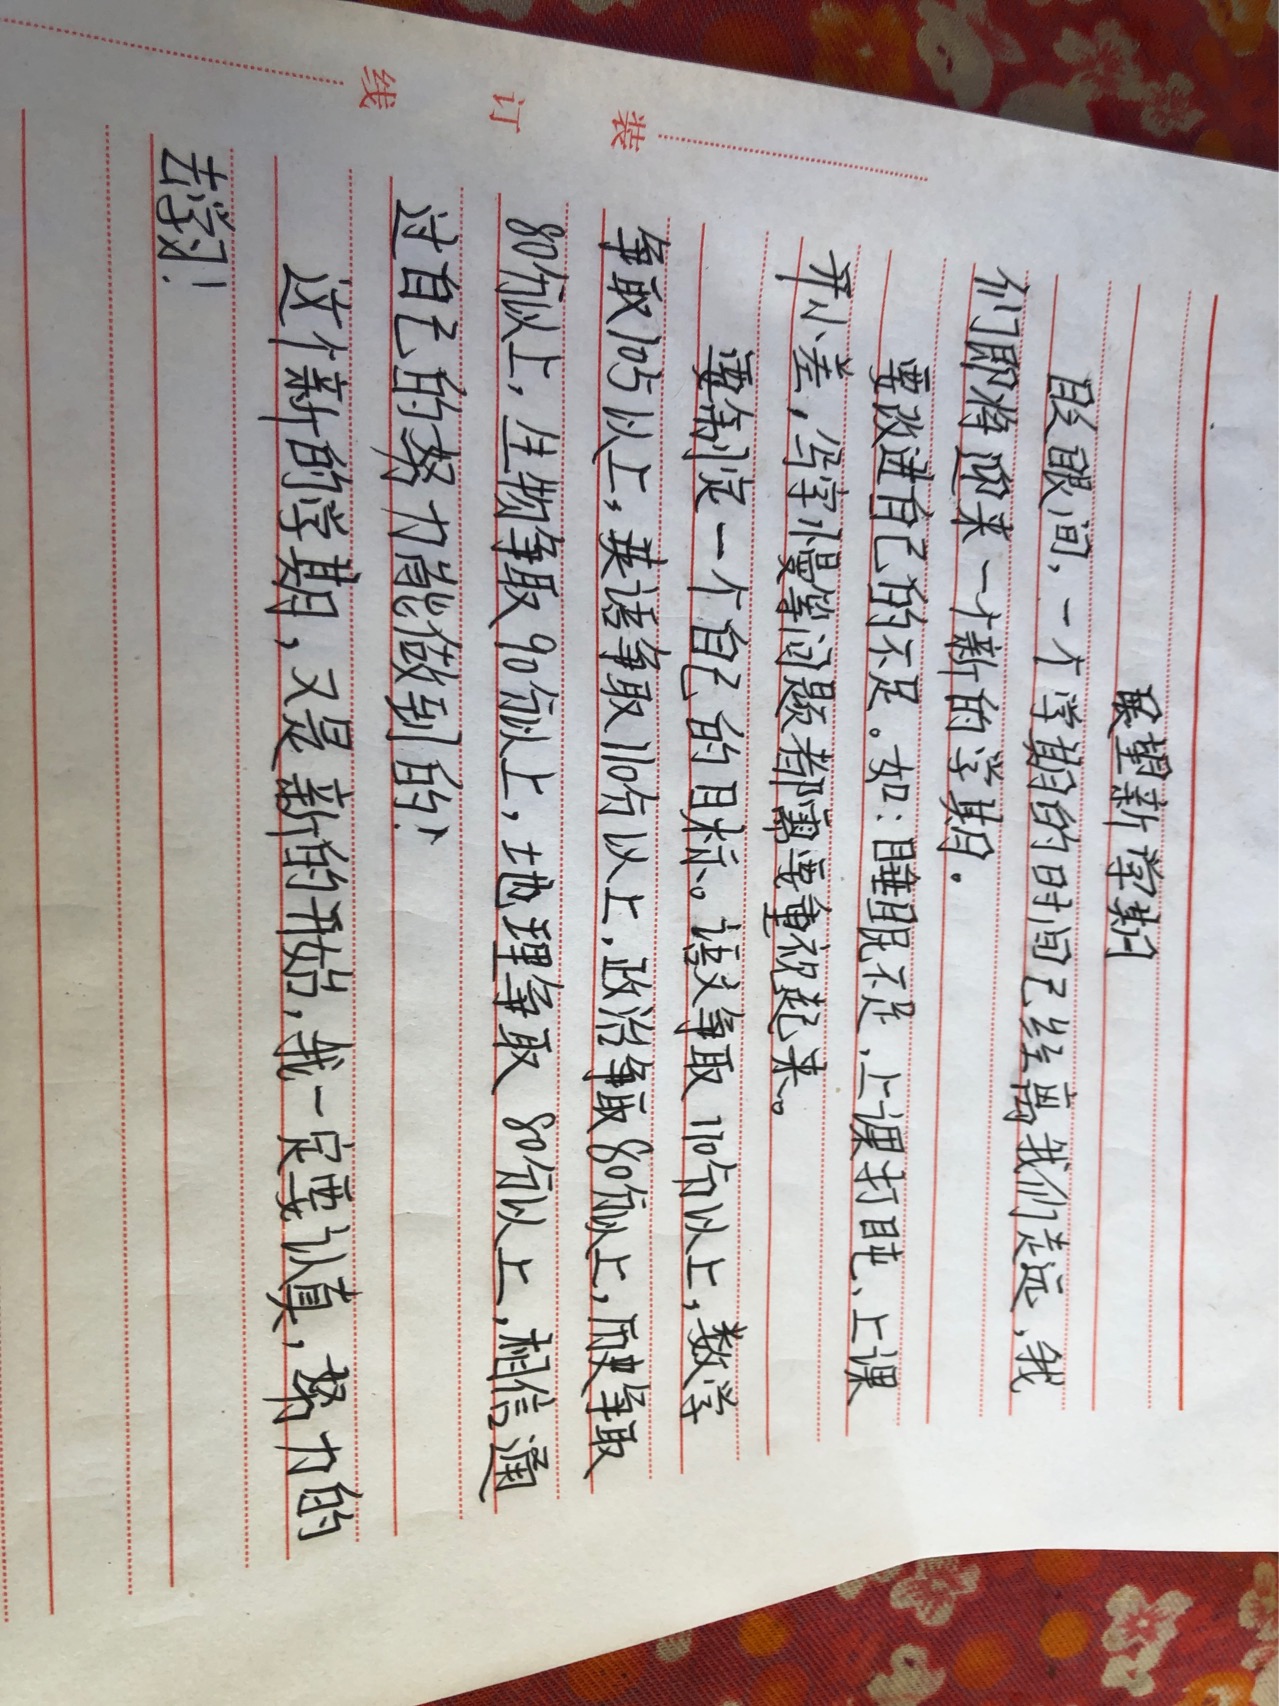 装
订
线
展望新学期
眨眼间，一个学期的时间已经离我们走远，我
们即将迎来一个新的学期。
要改进自己的不足。如：睡眠不足、上课打盹、上课
开小差，写字慢等问题都需要重视起来。
要制定一个自己的目标。语文争取110分以上，数学
争取105以上，英语争取110分以上，政治争取80分以上，历史争取
80分以上，生物争取90分以上，地理争取80分以上，相信通
过自己的努力能做到的！
这个新的学期，又是新的开始，我一定要认真，努力的
去学习！